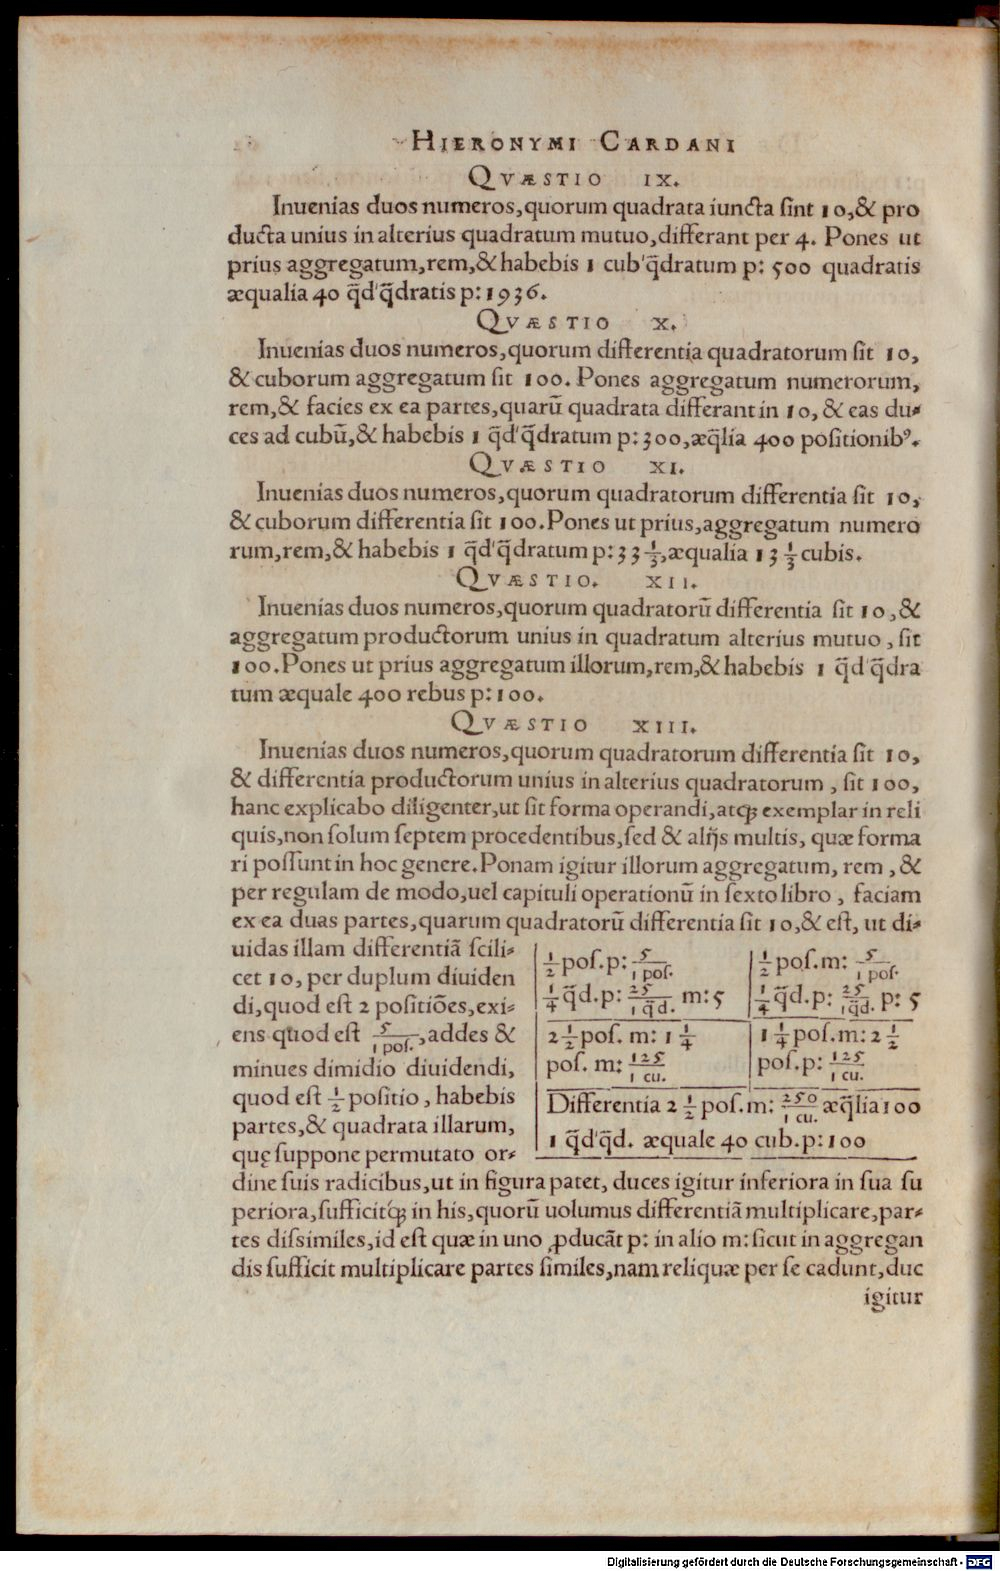 HIERONYMI CARDANI
QVÆSTIO IX.
Inuenias duos numeros, quorum quadrata iuncta sint 10, & pro
ducta unius in alterius quadratum mutuo, differant per 4. Pones ut
prius aggregatum, rem, & habebis 1 cub'q̃dratum p: 500 quadratis
æqualia 40 q̃d'q̃dratis p: 1936.
QVÆSTIO X.
Inuenias duos numeros, quorum differentia quadratorum sit 10,
& cuborum aggregatum sit 100. Pones aggregatum numerorum,
rem, & facies ex ea partes, quarũ quadrata differant in 10, & eas du⸗
ces ad cubũ, & habebis 1 q̃d'q̃dratum p: 300, æq̃lia 400 positionibꝰ.
QVÆSTIO XI.
Inuenias duos numeros, quorum quadratorum differentia sit 10,
& cuborum differentia sit 100. Pones ut prius, aggregatum numero
rum, rem, & habebis 1 q̃d'q̃dratum p: 33 1/3, æqualia 13 1/3 cubis.
QVÆSTIO. XII.
Inuenias duos numeros, quorum quadratorũ differentia sit 10, &
aggregatum productorum unius in quadratum alterius mutuo, sit
100. Pones ut prius aggregatum illorum, rem, & habebis 1 q̃d'q̃dra
tum æquale 400 rebus p: 100.
QVÆSTIO XIII.
Inuenias duos numeros, quorum quadratorum differentia sit 10,
& differentia productorum unius in alterius quadratorum, sit 100,
hanc explicabo diligenter, ut sit forma operandi, atq; exemplar in reli
quis, non solum septem procedentibus, sed & alijs multis, quæ forma
ri possunt in hoc genere. Ponam igitur illorum aggregatum, rem, &
per regulam de modo, uel capituli operationũ in sexto libro, faciam
ex ea duas partes, quarum quadratorũ differentia sit 10, & est, ut di⸗
uidas illam differentiã scili⸗
cet 10, per duplum diuiden
di, quod est 2 positiões, exi⸗
ens quod est 5/1 pos., addes &
minues dimidio diuidendi,
quod est 1/2 positio, habebis
partes, & quadrata illarum,
quę suppone permutato or⸗
1/2 pos. p: 5/1 pos. 1/2 pos. m: 5/1 pos.
1/4 q̃d. p: 25/1 q̃d. m: 5 1/4 q̃d. p: 25/1 q̃d. p: 5
2 1/2 pos. m: 1 1/4 1 1/4 pos. m: 2 1/2
pos. m: 125/1 cu. pos. p: 125/1 cu.
Differentia 2 1/2 pos. m: 250/1 cu. æq̃lia 100
1 q̃d'q̃d. æquale 40 cub. p: 100
dine suis radicibus, ut in figura patet, duces igitur inferiora in sua su
periora, sufficitq́; in his, quorũ uolumus differentiã multiplicare, par⸗
tes dissimiles, id est quæ in uno ꝓducãt p: in alio m: sicut in aggregan
dis sufficit multiplicare partes similes, nam reliquæ per se cadunt, duc
igitur
Digitalisierung gefördert durch die Deutsche Forschungsgemeinschaft - DFG